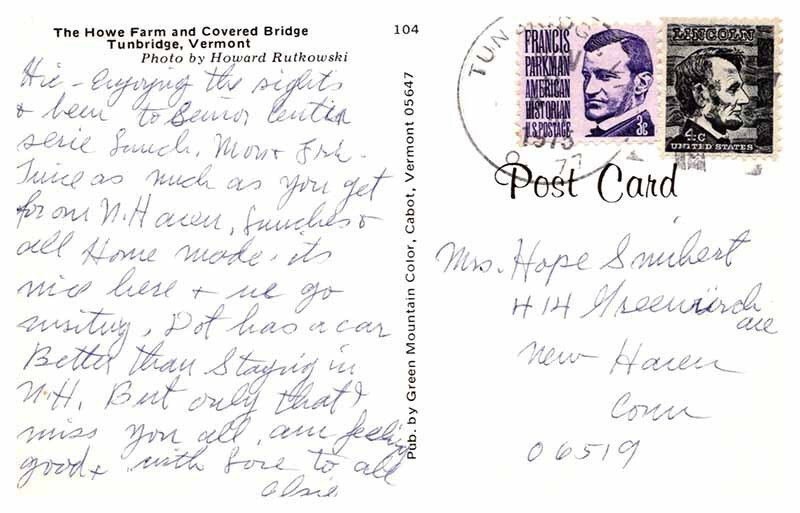 The Howe Farm and Covered Bridge
Tunbridge, Vermont
Photo by Howard Rutkowski
104
Hie - Enjoying the sights
& been to Senior Center
serie Lunch. Mon & Fri.
Twice as much as you get
from N. Haven, Lunches &
all Home made. its
nice here & we go
visiting. Dot has a car
Better than Staying in
N.H. But only that I
miss you all, am feeling
good & with Love to all
Elsie
Pub. by Green Mountain Color, Cabot, Vermont 05647
TUNBRIDGE
1975
FRANCIS
PARKMAN
AMERICAN
HISTORIAN
U.S. POSTAGE 3c
LINCOLN
4c
UNITED STATES
Post Card
Mrs. Hope Smibert
414 Greenwich
ave
New Haven
Conn
06519